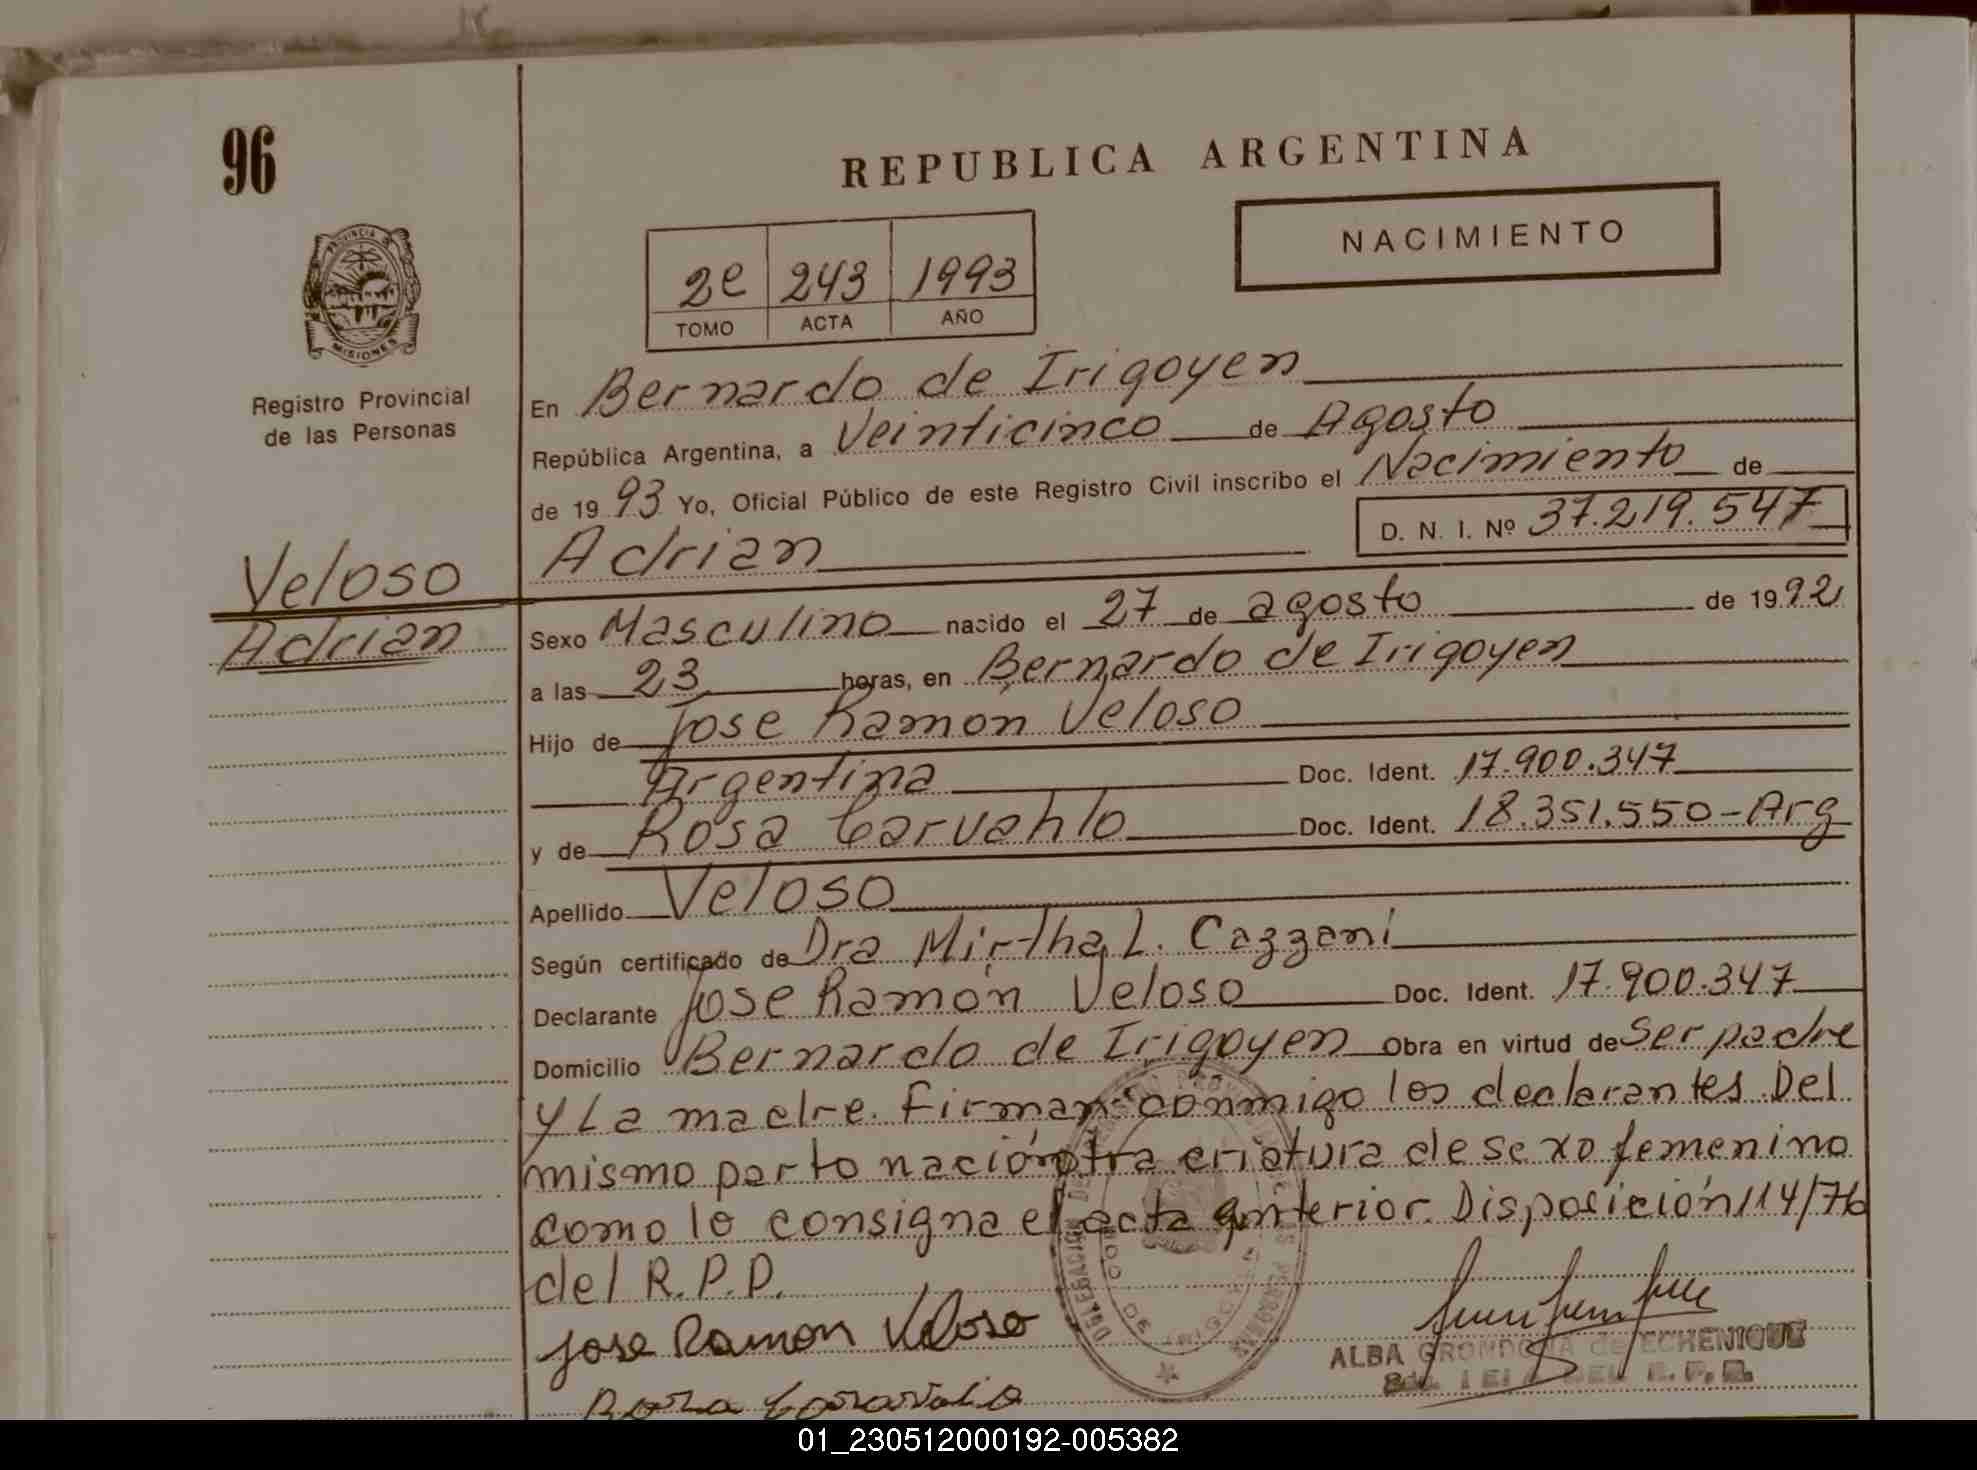 96
REPUBLICA ARGENTINA
NACIMIENTO
2e 243 1993
TOMO ACTA AÑO
PROVINCIA DE MISIONES
Registro Provincial
de las Personas
En Bernardo de Irigoyen
República Argentina, a Veinticinco de Agosto
de 1993 Yo, Oficial Público de este Registro Civil inscribo el Nacimiento de
D. N. I. Nº 37.219.547
Adrian
Veloso
Adrian
Sexo Masculino nacido el 27 de agosto de 1992
a las 23 horas, en Bernardo de Irigoyen
Hijo de Jose Ramon Veloso
Argentina Doc. Ident. 17.900.347
y de Rosa Carvahlo Doc. Ident. 18.351.550-Arg
Apellido Veloso
Según certificado de Dra Mirtha L. Cazzani
Declarante Jose Ramón Veloso Doc. Ident. 17.900.347
Domicilio Bernardo de Irigoyen Obra en virtud de Ser padre
y La madre. Firman conmigo los declarantes. Del
mismo parto nació otra criatura de sexo femenino
como lo consigna el acta anterior. Disposición 114/76
del R.P.P.
Jose Ramon Veloso
ALBA GRONDONA de ECHENIQUE
DEL R. P. P.
Rosa
01_230512000192-005382